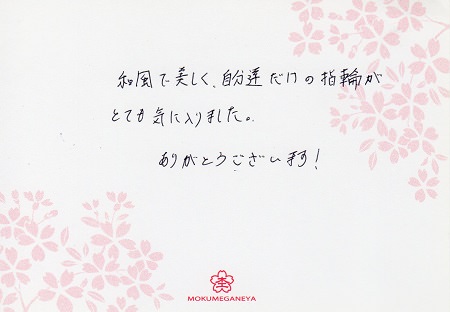 和風で美しく、自分達だけの指輪が
とても気に入りました。
ありがとうございます!
MOKUMEGANEYA